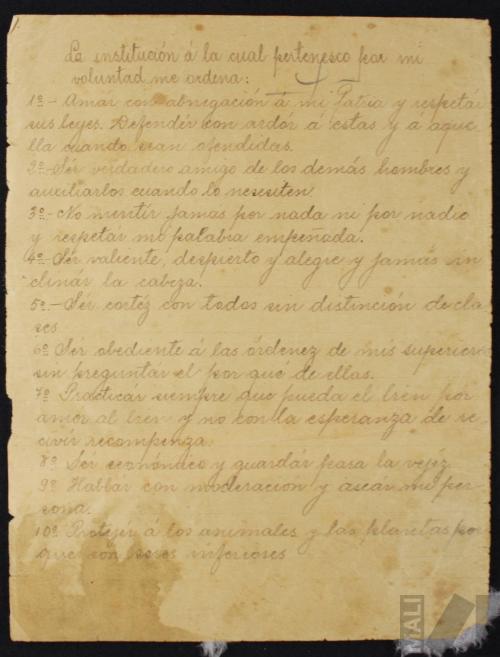 La institución á la cual pertenesco por mi
voluntad me ordena:
1º- Amar con abnegación á mi Patria y respetár
sus leyes. Defendér con ardór á éstas y á aque
lla cuando sean ofendidas.
2º- Sér verdadero amigo de los demás hombres y
auxiliarlos cuando lo nesesiten
3º- No mentír jamas por nada ni por nadie
y respetár mi palabra empeñada.
4º- Sér valiente, despierto y alegre y jamás in
clinár la cabeza.
5º- Sér cortéz con todos sin distinción de cla
ses
6º Sér obediente á las órdenez de mis superiores
sin preguntar el por que de ellas.
7º Practicár siempre que pueda el bien por
amor al bien y no con la esperanza de re
civir recompenza.
8º Sér económico y guardár para la vejéz
9º Hablár con moderación y aseár mi per
sona.
10º Protejér á los animales y las plantas por
que son seres inferiores
MALI